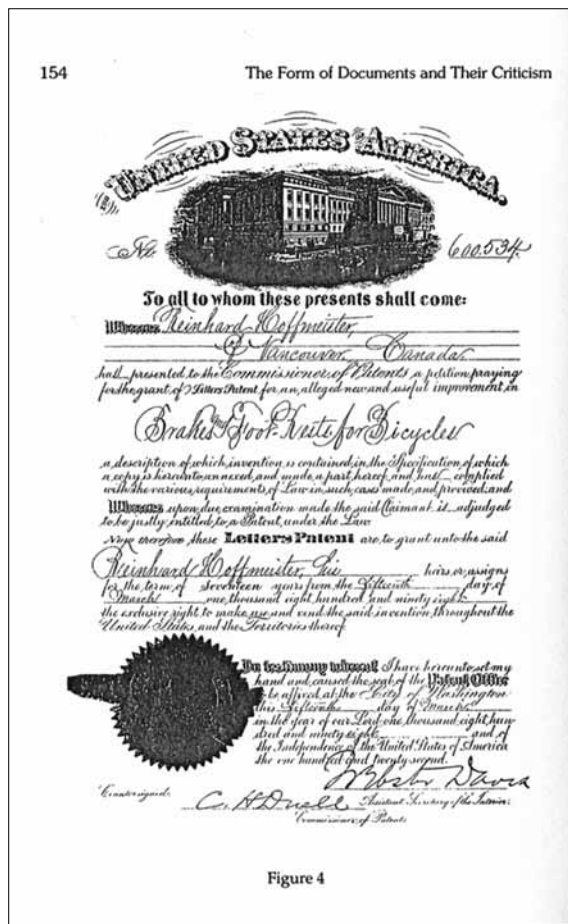 154 The Form of Documents and Their Criticism
UNITED STATES OF AMERICA.
No. 600,534.
To all to whom these presents shall come:
Whereas Reinhard Hoffmeister,
of Vancouver, Canada,
has presented to the Commissioner of Patents a petition praying
for the grant of Letters Patent for an alleged new and useful improvement in
Brakes and Foot-Rests for Bicycles
a description of which invention is contained in the Specification of which
a copy is hereunto annexed and made a part hereof, and has complied
with the various requirements of Law in such cases made and provided, and
Whereas upon due examination made the said Claimant is adjudged
to be justly entitled to a Patent under the Law.
Now therefore these Letters Patent are to grant unto the said
Reinhard Hoffmeister, his heirs or assigns
for the term of Seventeen years from the fifteenth day of
March one thousand eight hundred and ninety eight
the exclusive right to make use and vend the said invention throughout the
United States and the Territories thereof.
In testimony whereof I have hereunto set my
hand and caused the seal of the Patent Office
to be affixed at the City of Washington
this fifteenth day of March,
in the year of our Lord one thousand eight hun-
dred and ninety eight and of
the Independence of the United States of America
the one hundred and twenty second.
Webster Davis
Countersigned. C. H. Duell Assistant Secretary of the Interior.
Commissioner of Patents
Figure 4